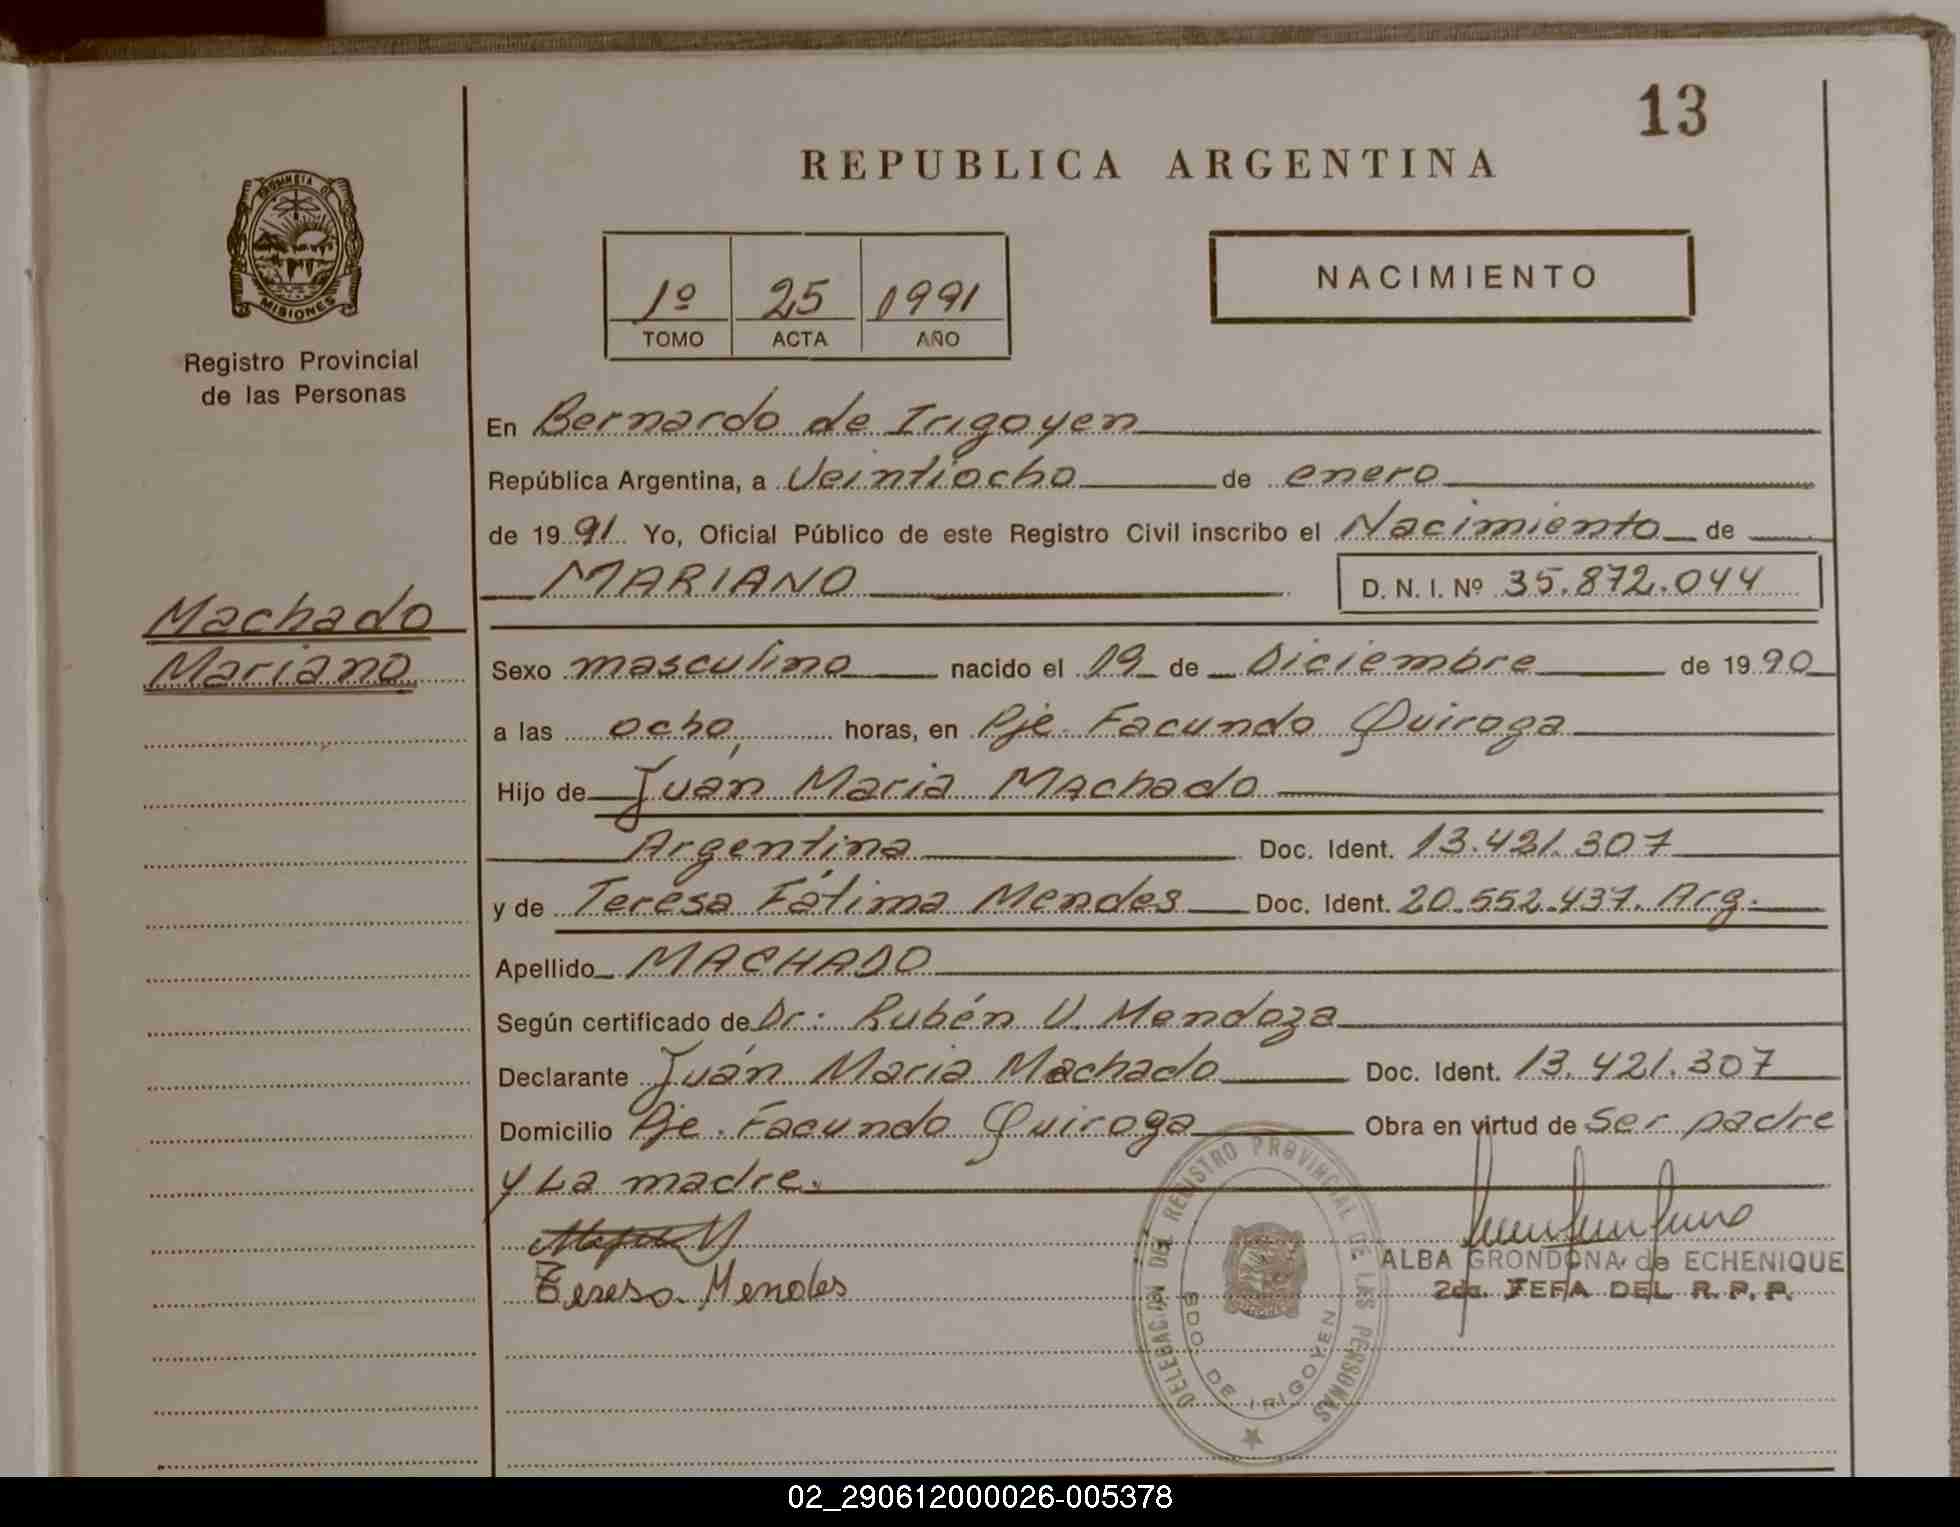 13
REPUBLICA ARGENTINA
PROVINCIA DE
MISIONES
Registro Provincial
de las Personas
1º 25 1991
TOMO ACTA AÑO
NACIMIENTO
En Bernardo de Irigoyen
República Argentina, a Veintiocho de enero
de 1991 Yo, Oficial Público de este Registro Civil inscribo el Nacimiento de
MARIANO D. N. I. Nº 35.872.044
Machado
Mariano
Sexo masculino nacido el 19 de Diciembre de 1990
a las ocho, horas, en Pje. Facundo Quiroga
Hijo de Juán Maria Machado
Argentina Doc. Ident. 13.421.307
y de Teresa Fátima Mendes Doc. Ident. 20.552.437. Arg.
Apellido MACHADO
Según certificado de Dr: Rubén V. Mendoza
Declarante Juán Maria Machado Doc. Ident. 13.421.307
Domicilio Pje. Facundo Quiroga Obra en virtud de ser padre
y La madre.
Teresa Mendes
ALBA GRONDONA de ECHENIQUE
2da. JEFA DEL R. P. P.
DELEGACION DEL REGISTRO PROVINCIAL DE LAS PERSONAS
BDO. DE IRIGOYEN
02_290612000026-005378